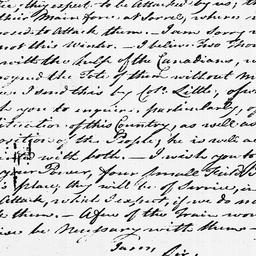 they expect to be Attacked by us, th
their Main force at Sorrel, where
posed to Attack them. I am sorry
not this Winter. I believe two thou
with the help of the Canadians,
the Tote of them without
I send this by Col. Little,
you to enquire particularly, of
Situation of this Country, as well as
position of the People, he is well a
with both. — I wish you to
Power, four small Field
place, they will be of Service, in
Attack, which I expect, if we do no
them. — A few of the Train wou
be Necessary with them —
I am, Sir,